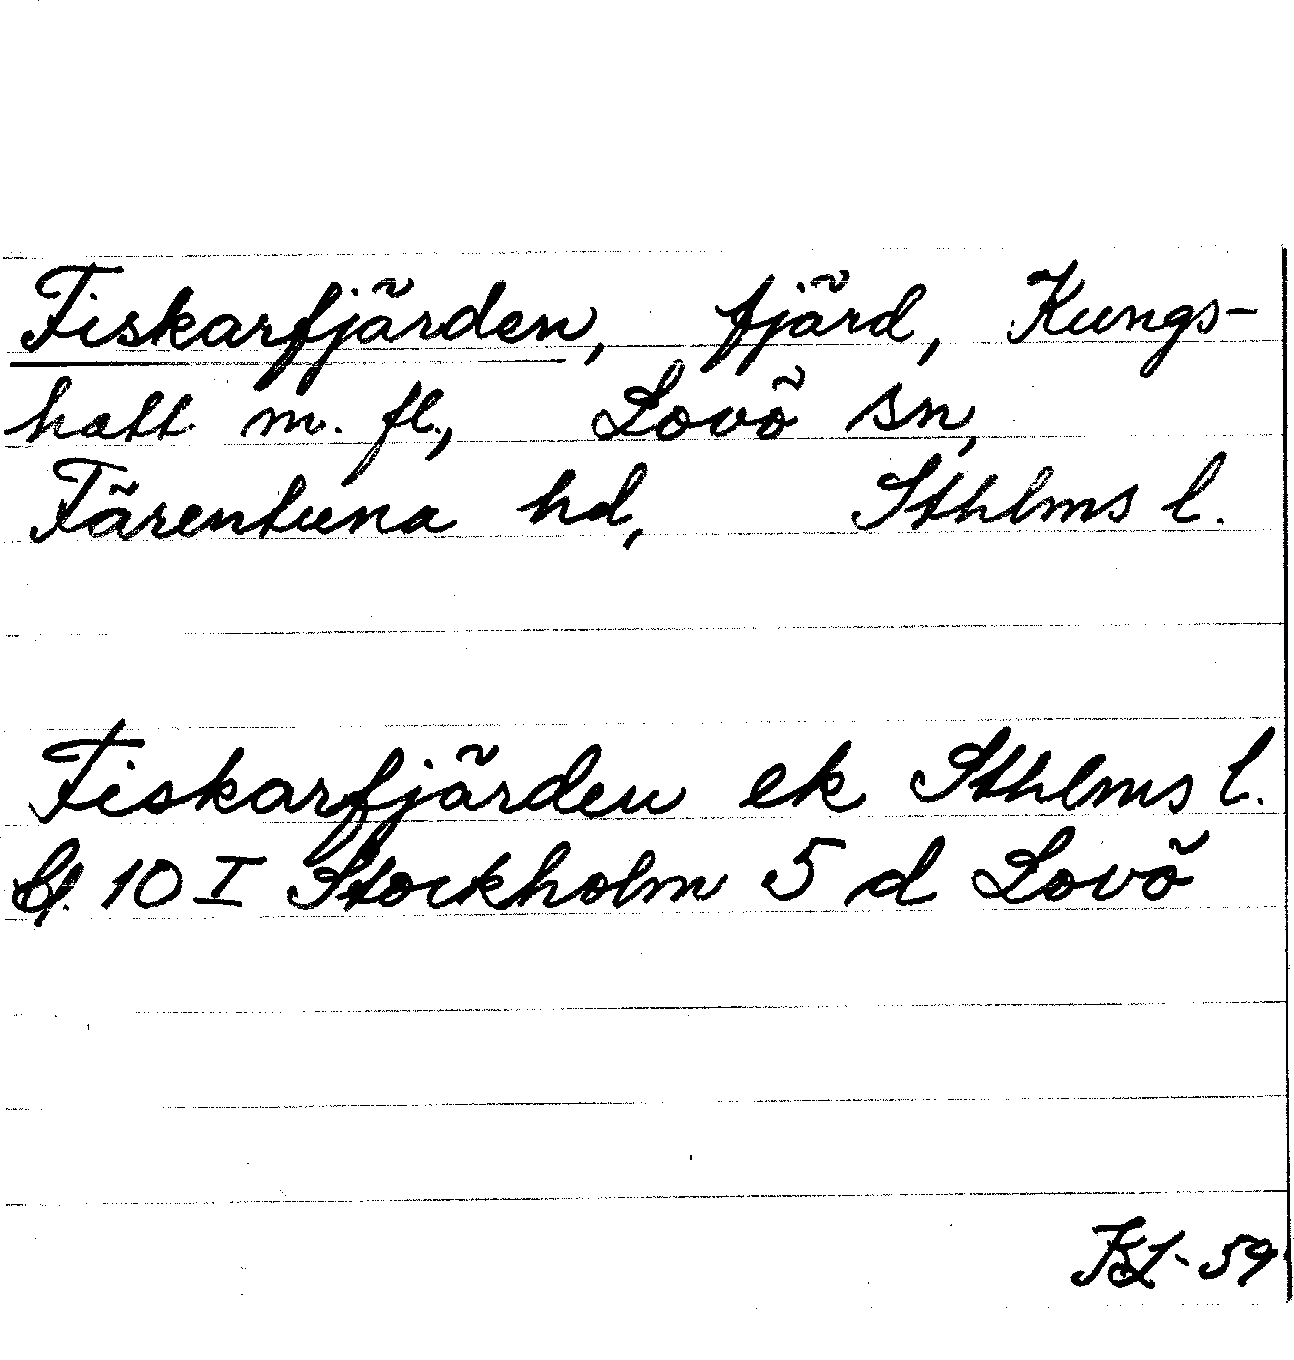 Fiskarfjärden, fjärd, Kungs-
hatt m. fl., Lovö sn,
Färentuna hd, Sthlms l.
Fiskarfjärden ek Sthlms l.
bl. 10 I Stockholm 5 d Lovö
KL-59